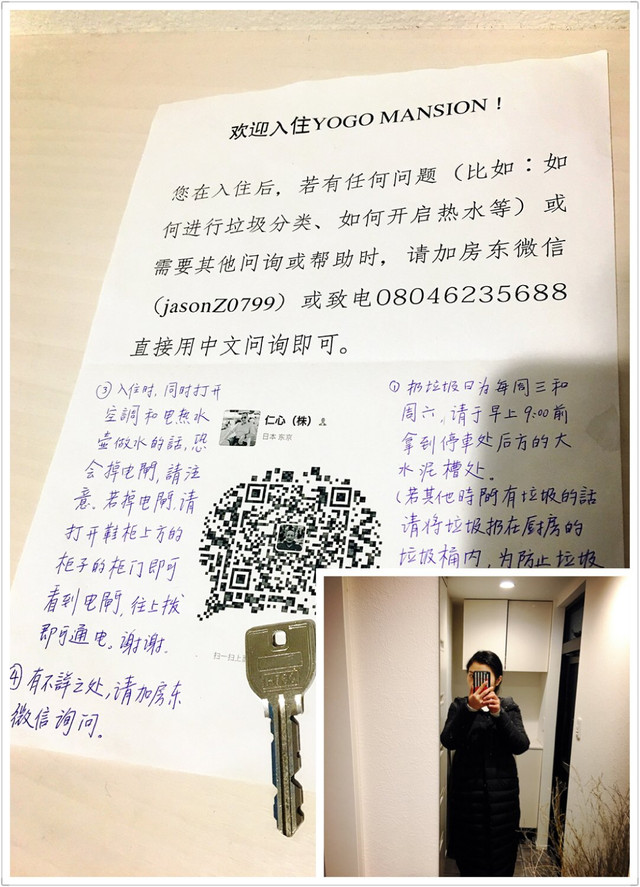 欢迎入住YOGO MANSION！
您在入住后，若有任何问题（比如：如
何进行垃圾分类、如何开启热水等）或
需要其他问询或帮助时，请加房东微信
（jasonZ0799）或致电08046235688
直接用中文问询即可。
① 扔垃圾日为每周三和
周六，请于早上9:00前
拿到停車处后方的大
水泥槽处。
（若其他時間有垃圾的話
请将垃圾扔在厨房的
垃圾桶内，为防止垃圾
③ 入住时，同时打开
空調和电热水
壶做水的話，恐
会掉电閘，請注
意。若掉电閘，请
打开鞋柜上方的
柜子的柜门即可
看到电閘，往上拨
即可通电。谢谢.
④ 有不詳之处，请加房东
微信询问。
仁心（株）
日本 东京
扫一扫上